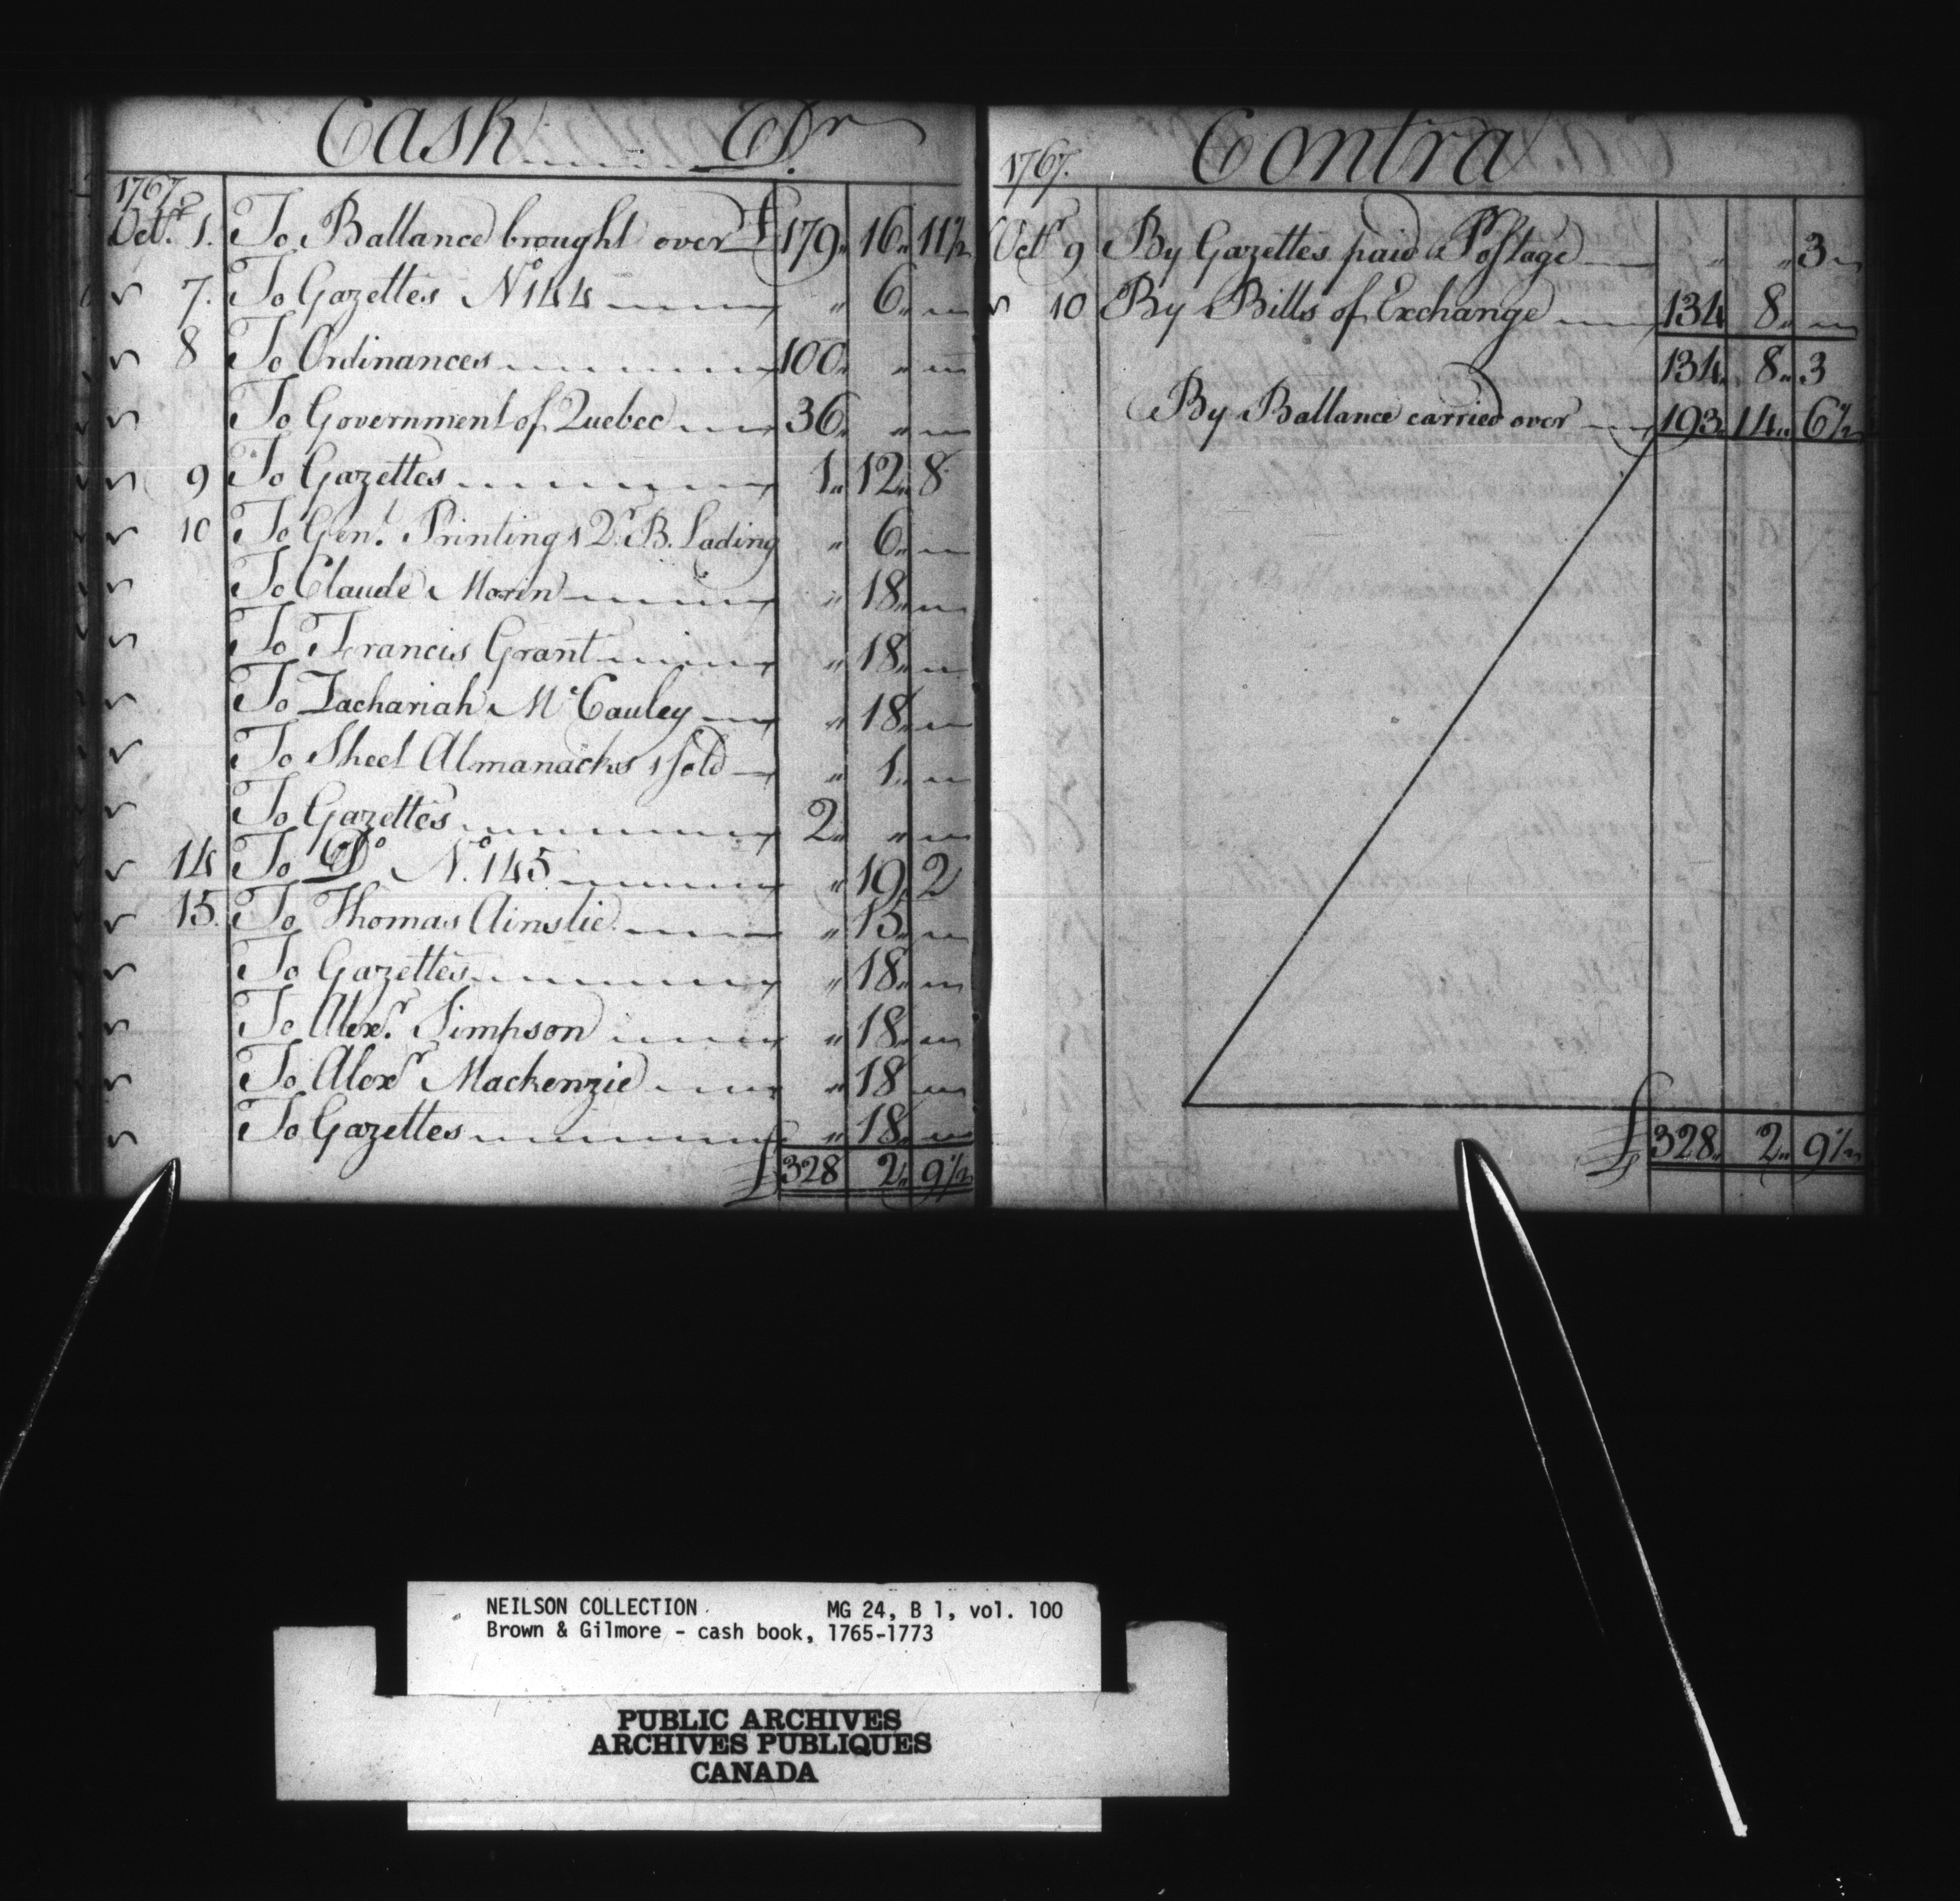 Cash Dr
1767.
Octr. 1. To Ballance brought over £ 179 16 11½
7. To Gazettes No 144 " 6 "
8 To Ordinances 100 " "
To Government of Quebec 36 " "
9 To Gazettes 1 12 8
10 To Gen. Printing 1 Qr. B. Lading " 6 "
To Claude Morin " 18 "
To Francis Grant " 18 "
To Zachariah McCauley " 18 "
To Sheet Almanacks 1 sold " 1 "
To Gazettes 2 " "
14 To Do No. 145 " 19 2
15. To Thomas Ainslie " 15 "
To Gazettes " 18 "
To Alexr. Simpson " 18 "
To Alexr Mackenzie " 18 "
To Gazettes " 18 "
£ 328 2 9½
1767. Contra
Octr 9 By Gazettes paid Postage " " 3
10 By Bills of Exchange 134 8 "
134 8 3
By Ballance carried over 193 14 6½
£ 328 2 9½
NEILSON COLLECTION MG 24, B 1, vol. 100
Brown & Gilmore - cash book, 1765-1773
PUBLIC ARCHIVES
ARCHIVES PUBLIQUES
CANADA